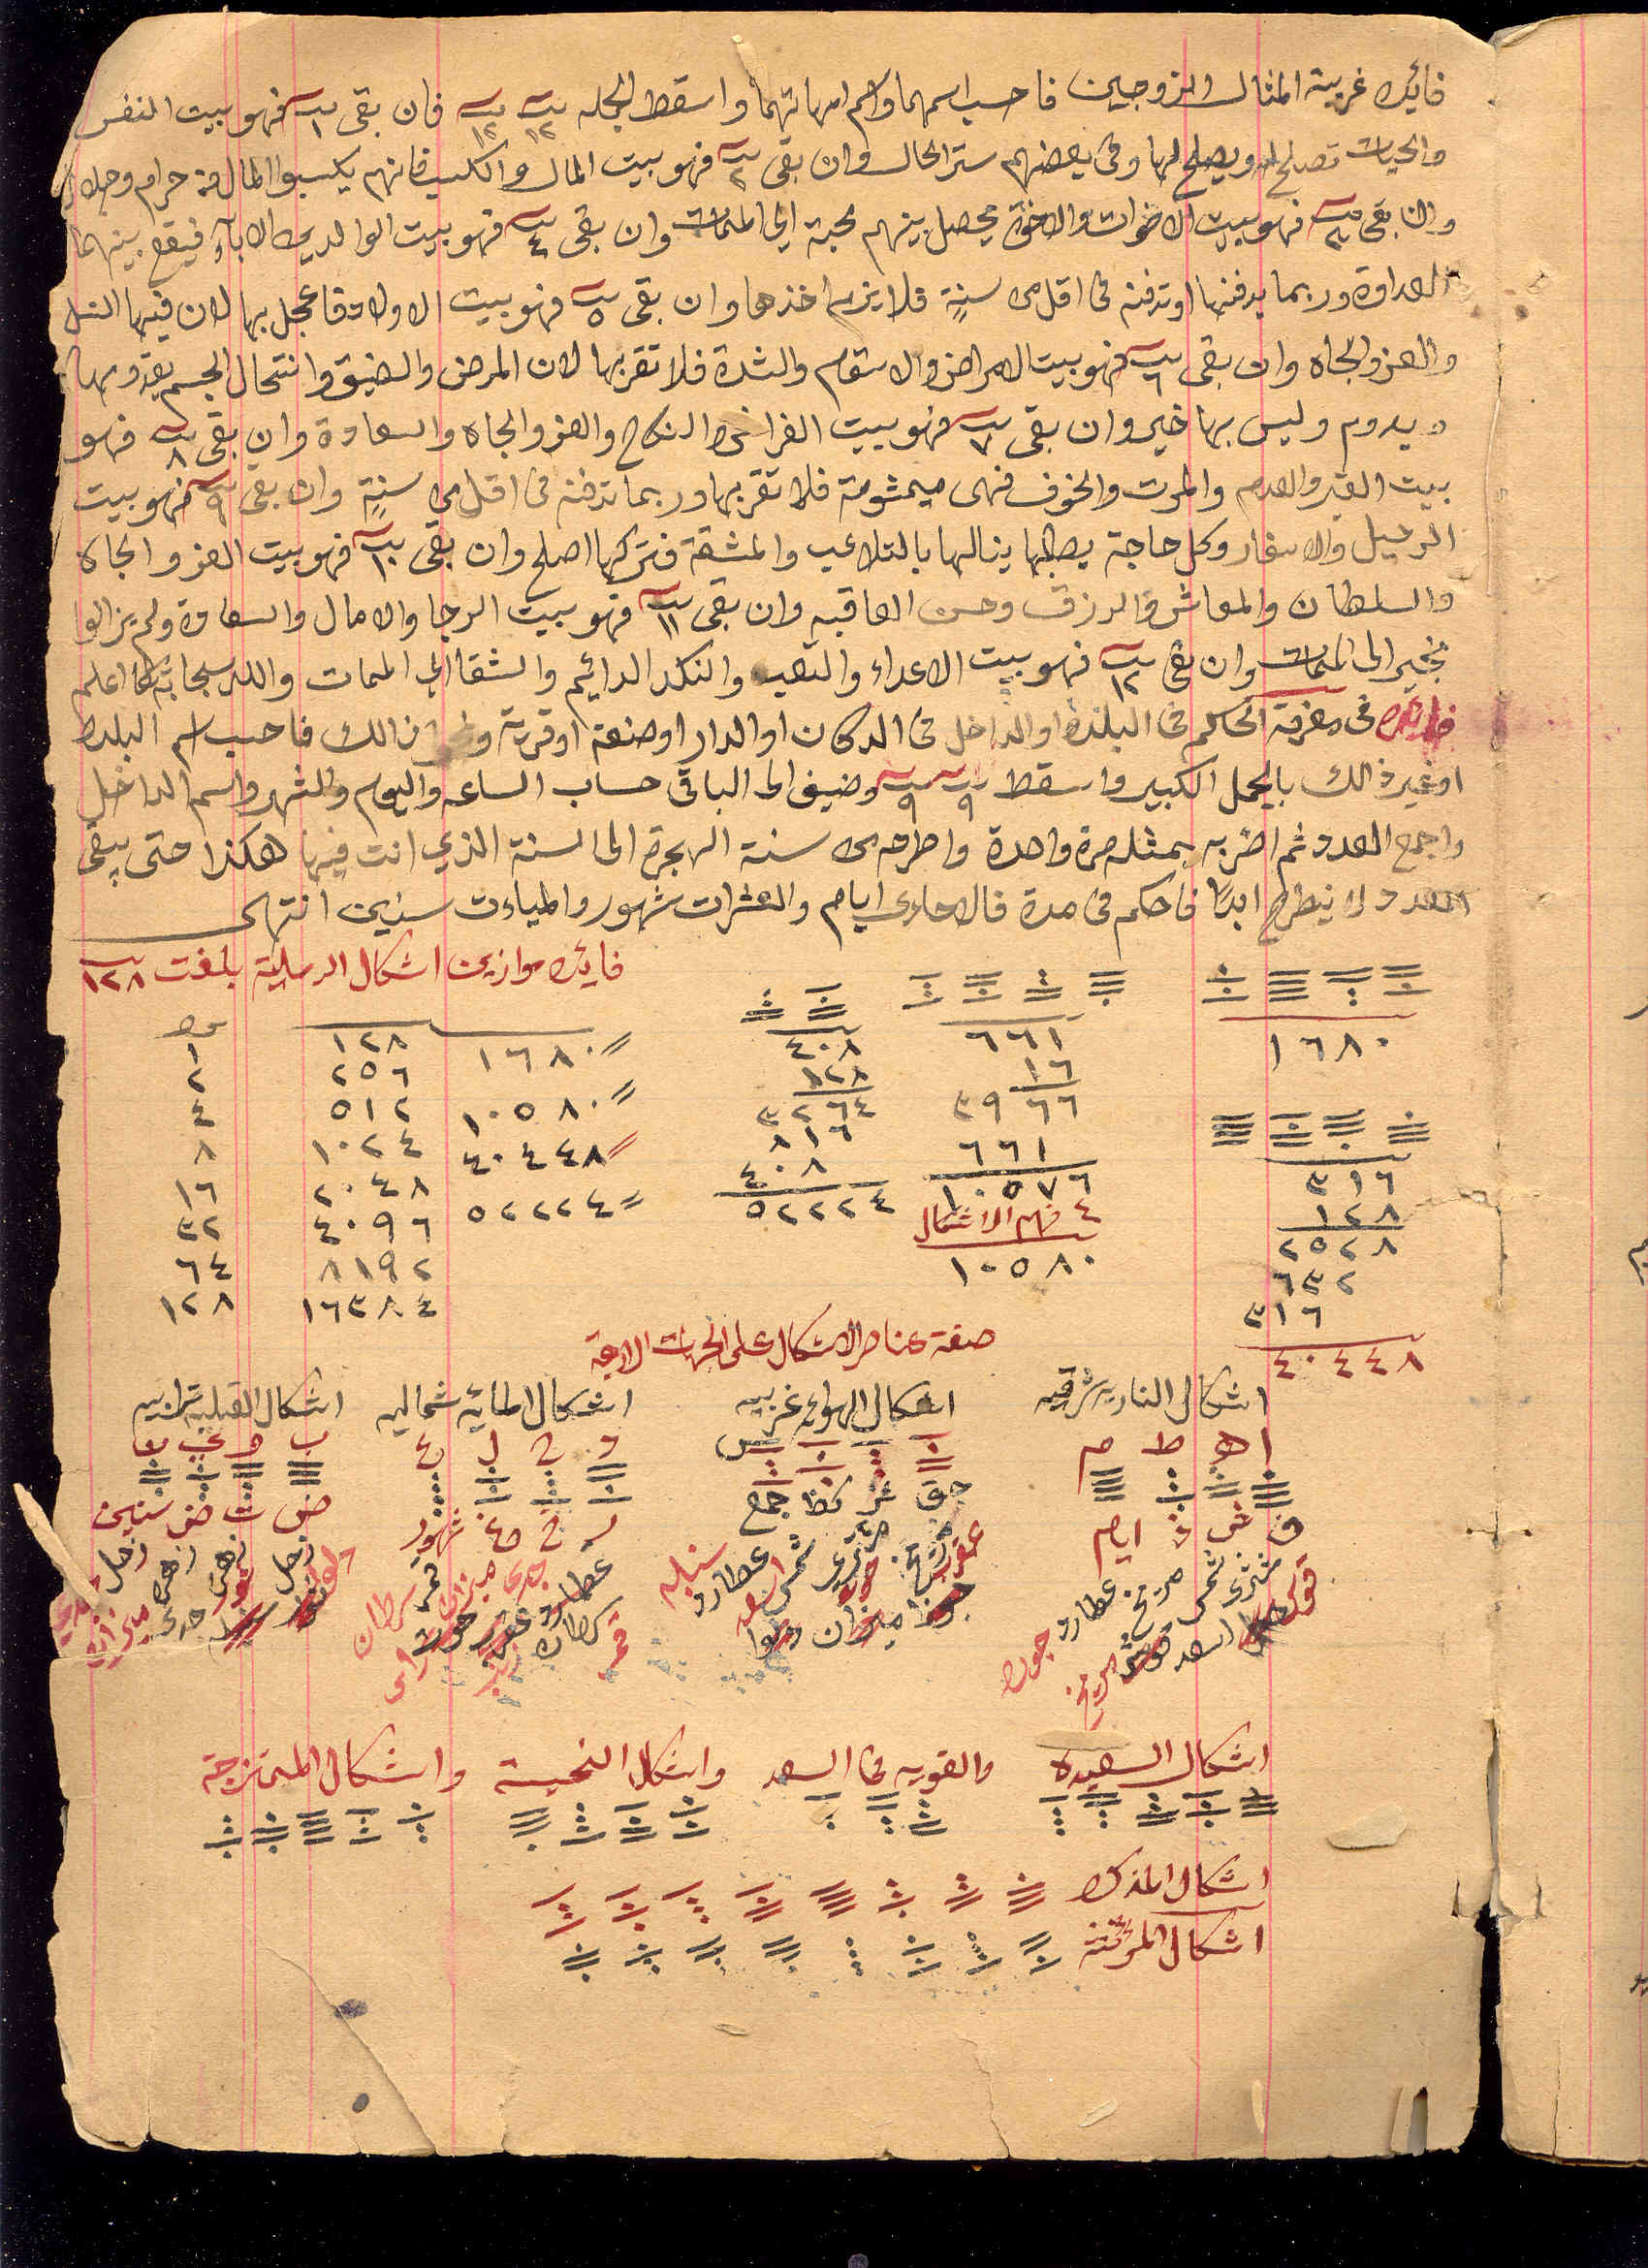 فايده غريبة المثال الزوجين فاحسب اسمهما واسم امهاتهما واسقط الجمله ١٢ ١٢ فان بقى ١ فهو بيت النفس
والحيات تصلح له ويصلح لها وفى بعضهم ستر الحال وان بقى ٢ فهو بيت المال والكسب فانهم يكسبو المال من حرام وحلال
وان بقى ٣ فهو بيت الاخوات والاخوة يحصل بينهم محبة الي الممات وان بقى ٤ فهو بيت الوالدين والابآء فيقع بينهما
العداوة وربما يدفنها او تدفنه فى اقل من سنةٍ فلا يزم اخذها وان بقى ٥ فهو بيت الاولاد فاعجل بها لان فيها النسل
والعز والجاه وان بقى ٦ فهو بيت الامراض والاسقام والشدة فلا تقربها لان المرض والضيق وانتحال الجسم
ويدوم وليس بها خير وان بقى ٧ فهو بيت الفراش والنكاح والعز والجاه والسعادة وان بقى ٨ فهو
بيت القبر والعدم والموت والخوف فهى ميشومة فلا تقربها وربما تدفنه فى اقل من سنةٍ وان بقى ٩ فهو بيت
الرحيل والاسفار وكل حاجة يطلبها ينالها بالتلاعب والمشقة فتركها اصلح وان بقى ١٠ فهو بيت العز والجاه
والسلطان والمعاش والرزق وحسن العاقبه وان بقى ١١ فهو بيت الرجا والامال والسعادة ولم يزالوا
بخير الى الممات وان بقى ١٢ فهو بيت الاعداء والتعب والنكد الدائيم والشقا الي الممات والله سبحانه اعلم
فايده فى معرفة الحاكم فى البلده او الداخل فى الدكان او الدار او صنعة او قرية ذالك فاحسب اسم البلده
او غير ذالك بالجمل الكبير واسقط ٩ ٩ وضيف الى الباقى حساب الساعه واليوم والشهر واسم الداخل
واجمع العدد ثم اضربه بمثله مرة واحدة واطرحه من سنة الهجرة الى السنة الذي انت فيها هكذا حتى يبقى
العدد لا ينطرح ابدًا فاحكم فى مدة فالاحاد ايام والعشرات شهور والمياءت سنين انتهى
فايده موازين اشكال الرملية بلغت ١٢٨
١٦٨٠
٦٦١
١٦
٣٩٦٦
٦٦١
١٠٥٧٦
٤ فهم الاشكال
١٠٥٨٠
٤٠٨
١٢٨
٣٢٦٤
٨١٦
٤٠٨
٥٢٢٢٤
١٦٨٠
١٠٥٨٠
٤٠٤٤٨
٥٢٢٢٤
١٢٨
٢٥٦
٥١٢
١٠٢٤
٢٠٤٨
٤٠٩٦
٨١٩٢
١٦٣٨٤
١
٢
٤
٨
١٦
٣٢
٦٤
١٢٨
٣١٦
١٢٨
٢٥٢٨
٦٣٢
٣١٦
٤٠٤٤٨
صفة عناصر الاشكال على الجهات الاربعة
اشكال الناريه شرقيه اشكال الهوائيه غربيه اشكال المائيه شمالية اشكال القبليه ترابيه
ا ه ط م
د ح ل ع
ف ش ذ ايام
جق كظ جمع
شهور
سنين
مشترى شمس مريخ عطارد
مشترى شمس عطارد سنبله
عطارد قمر سرطان
زحل زهره زهره زحل
اسد
ميزان
جدى
اشكال السعيده والقويه فى السعد واشكال النحيسة واشكال الممتزجة
اشكال المذكره
اشكال المؤنثة